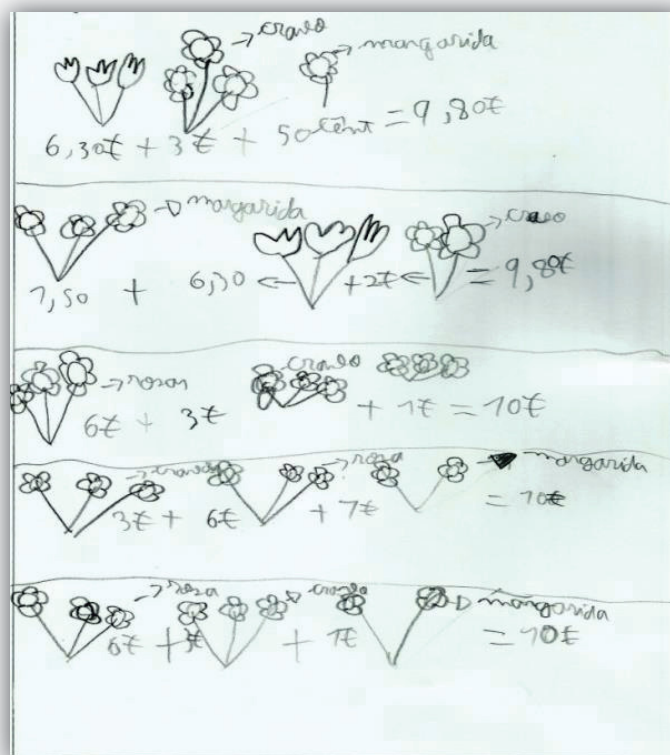 → cravo
→ margarida
6,30€ + 3€ + 50 cént = 9,80€
→ margarida
→ cravo
1,50 + 6,30 ← + 2€ ← = 9,80€
→ rosas
cravo
6€ + 3€ + 1€ = 10€
→ cravos
→ rosa
→ margarida
3€ + 6€ + 1€ = 10€
→ rosa
→ cravo
→ margarida
6€ + 3€ + 1€ = 10€